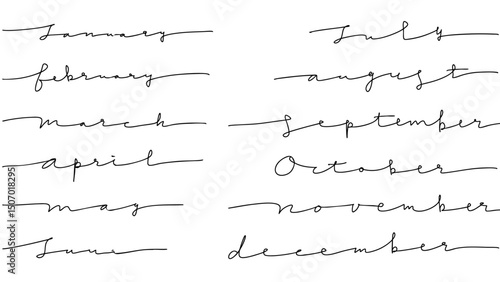 January
february
march
april
may
June
July
august
september
October
november
december
Adobe Stock | #1507018295